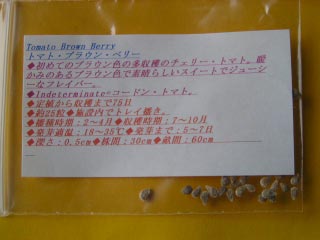 Tomato Brown Berry
トマト・ブラウン・ベリー
◆初めてのブラウン色の多収穫のチェリー・トマト。暖
かみのあるブラウン色で素晴らしいスイートでジューシ
ーなフレイバー。
◆Indeterminate=コードン・トマト。
◆定植から収穫まで75日
◆約25粒◆施設内でトレイ播き。
◆播種時期：2~4月◆収穫時期：7~10月
◆発芽適温：18~35℃◆発芽まで：5~7日
◆深さ：0.5cm◆株間：30cm◆畝間：60cm